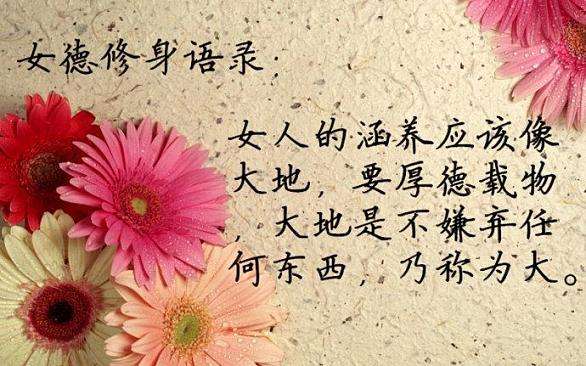 女德修身语录：
女人的涵养应该像
大地，要厚德载物
，大地是不嫌弃任
何东西，乃称为大。